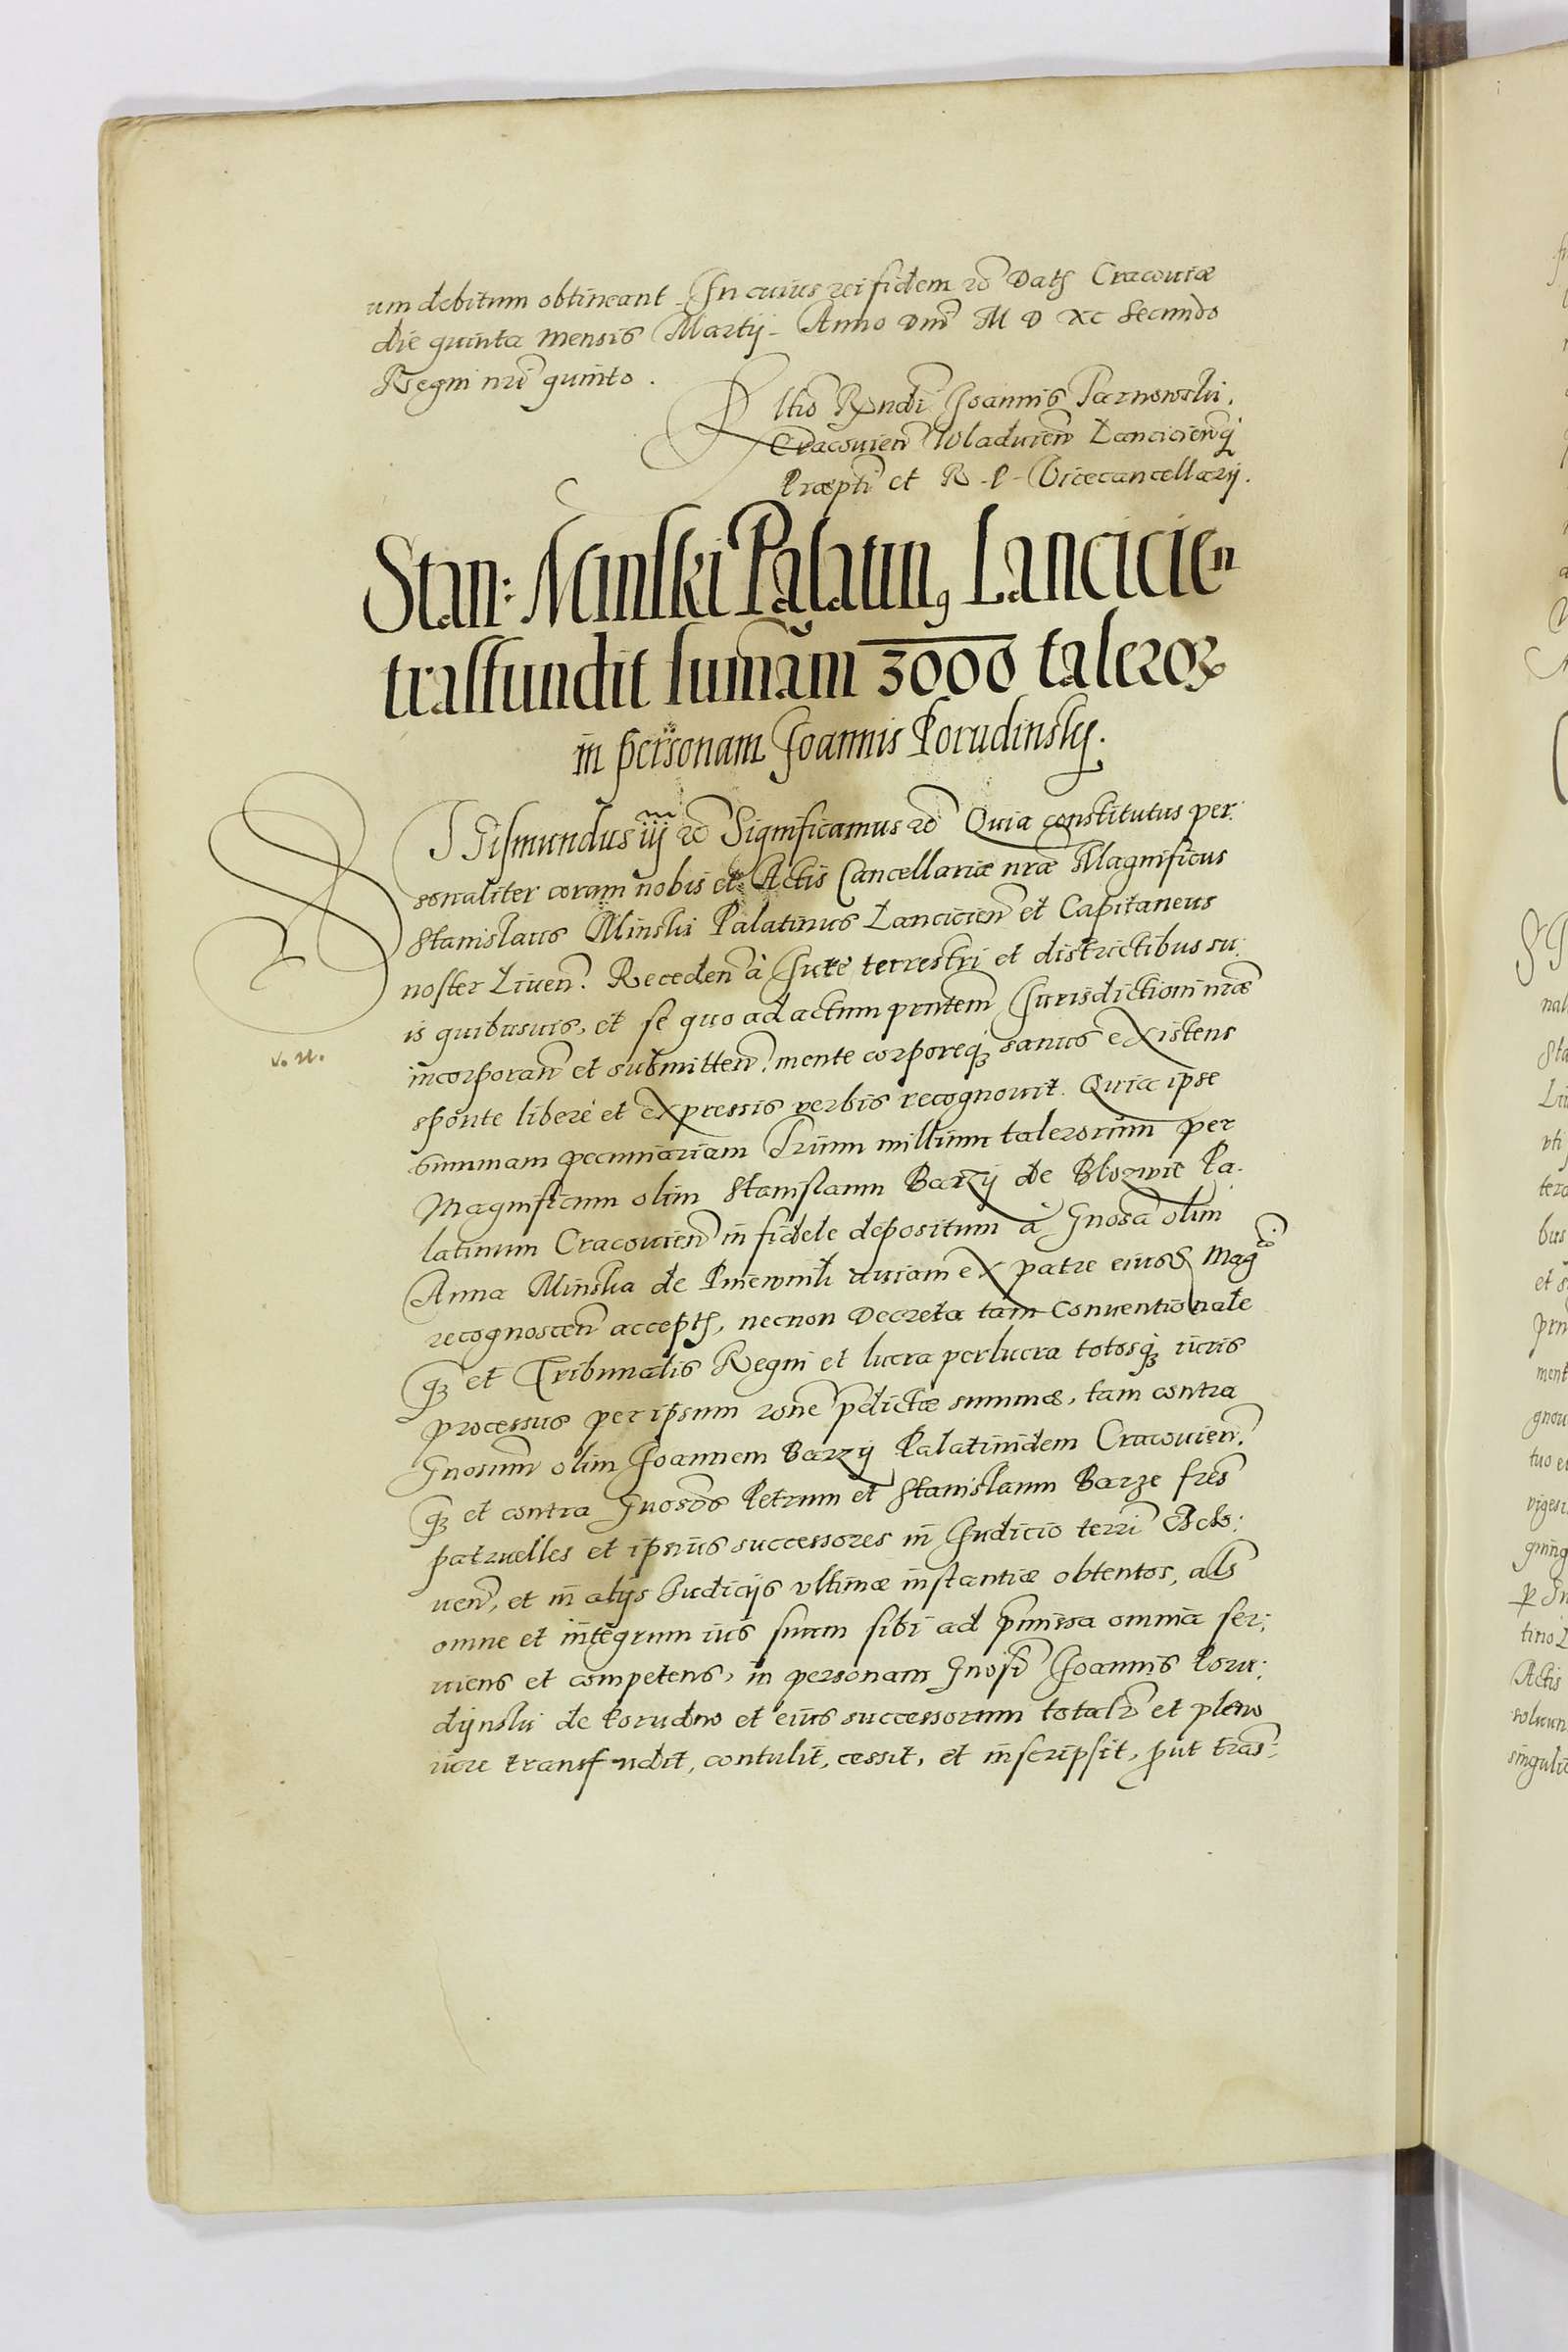 um debitum obtineant. In cuius rei fidem etc̃ Datꝭ Cracouiæ
die quinta mensis Martij. Anno Dni̅ M D XC Secundo
Regni nr̅i quinto.
Rltio̅ Rn̅di Joannis Tarnowski,
Cracouien̅ Wladuien̅ Lancicienq̢
Præpti̅ et R. P. Vicecancellarij.
Stan: Minski Palatinꝰ Lancicien
trasfundit sum̅am 3000 taleroꝝ
in personam Joannis Porudinsky.
SIgismundus iij etc̃ Significamus etc̃ Quia constitutus per:
sonaliter coram nobis et Actis Cancellariæ nr̅æ Magnificus
Stanislaus Minski Palatinus Lancicien̅ et Capitaneus
noster Liuen̅. Receden̅ à Iure terrestri et districtibus su:
is quibusuis, et se quo ad actum pr̅ntem Iurisdictioni nr̅æ
incorporan̅ et submitten̅, mente corporeqꝫ sanus existens
v. n.
sponte liberè et expressis verbis recognouit. Quia ipse
summam pecuniariam Trium millium talerorum per
Magnificum olim Stanislaum Barzij de Blozwie Pa:
latinum Cracouien̅ in fidele depositum à Gnosa̅ olim
Anna Minska de Pniewnik auiam ex patre eiusd̅ Mag̅ci
recognoscen̅ acceptꝭ, necnon Decreta tam Conuentionale
qꝫ et Tribunalis Regni et lucra perlucra totosqꝫ iuris
processus per ipsum ro̅ne p̅dictæ summæ, tam contra
Gnosum̅ olim Joannem Barzij Palatinidem Cracouien̅.
qꝫ et contra Gnosos̅ Petrum et Stanislaum Barze fres̅
patruelles et ipsius̅ successores in Iudicio terri̅ Cb̅elo:
uen̅, et in alijs Iudicijs vltimæ instantiæ obtentos, als̅
omne et integrum ius suum sibi ad p̅missa omnia ser:
uiens et competens, in personam Gnosi̅ Joannis Poru:
dijnski de Porudno et eius successorum totalr̅ et pleno
iure transfundit, contulit, cessit, et inscripsit, put̅ tras: